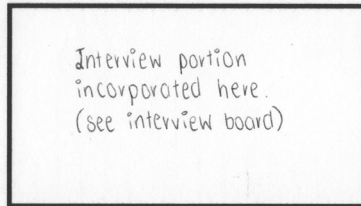 Interview portion
incorporated here.
(see interview board)